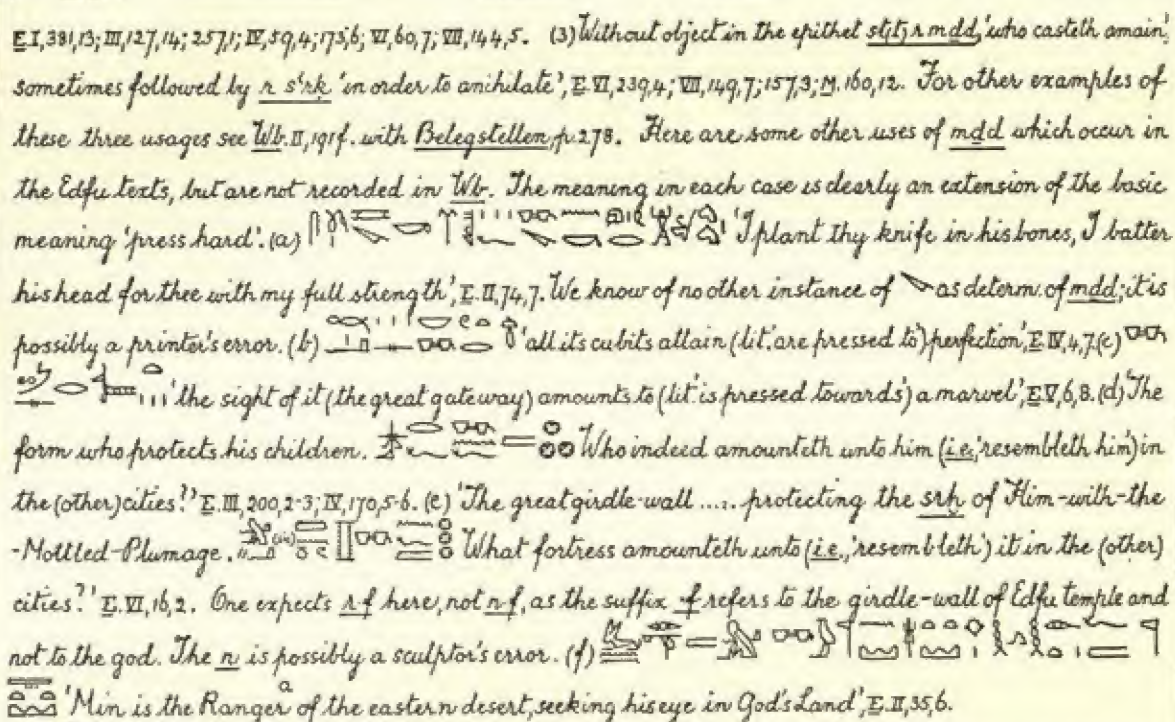 E.I,381,13; III,127,14; 257,1; IV,59,4; 175,6; VI,60,7; VII,144,5. (3) Without object in the epithet st(t) r mdd, 'who casteth amain',
sometimes followed by r sꜥrḳ 'in order to anihilate', E.VI,239,4; VII,149,7; 157,3; M.160,12. For other examples of
these three usages see Wb.II,191f. with Belegstellen, p.278. Here are some other uses of mdd which occur in
the Edfu texts, but are not recorded in Wb. The meaning in each case is clearly an extension of the basic
meaning 'press hard'. (a) 'I plant thy knife in his bones, I batter
his head for thee with my full strength', E.II,74,7. We know of no other instance of as determ. of mdd; it is
possibly a printer's error. (b) 'all its cubits attain (lit. 'are pressed to') perfection', E.IV,4,7. (c)
'the sight of it (the great gateway) amounts to (lit. 'is pressed towards') a marvel', E.V,6,8. (d) 'The
form who protects his children. Who indeed amounteth unto him (i.e., 'resembleth him') in
the (other) cities?' E.III,200,2-3; IV,170,5-6. (e) 'The great girdle-wall ..... protecting the srḫ of Him-with-the
-Mottled-Plumage. (sic) What fortress amounteth unto (i.e., 'resembleth') it in the (other)
cities?' E.VI,16,2. One expects r·f here, not n·f, as the suffix ·f refers to the girdle-wall of Edfu temple and
not to the god. The n is possibly a sculptor's error. (f)
'Min is the Rangerᵃ of the eastern desert, seeking his eye in God's Land', E.II,35,6.